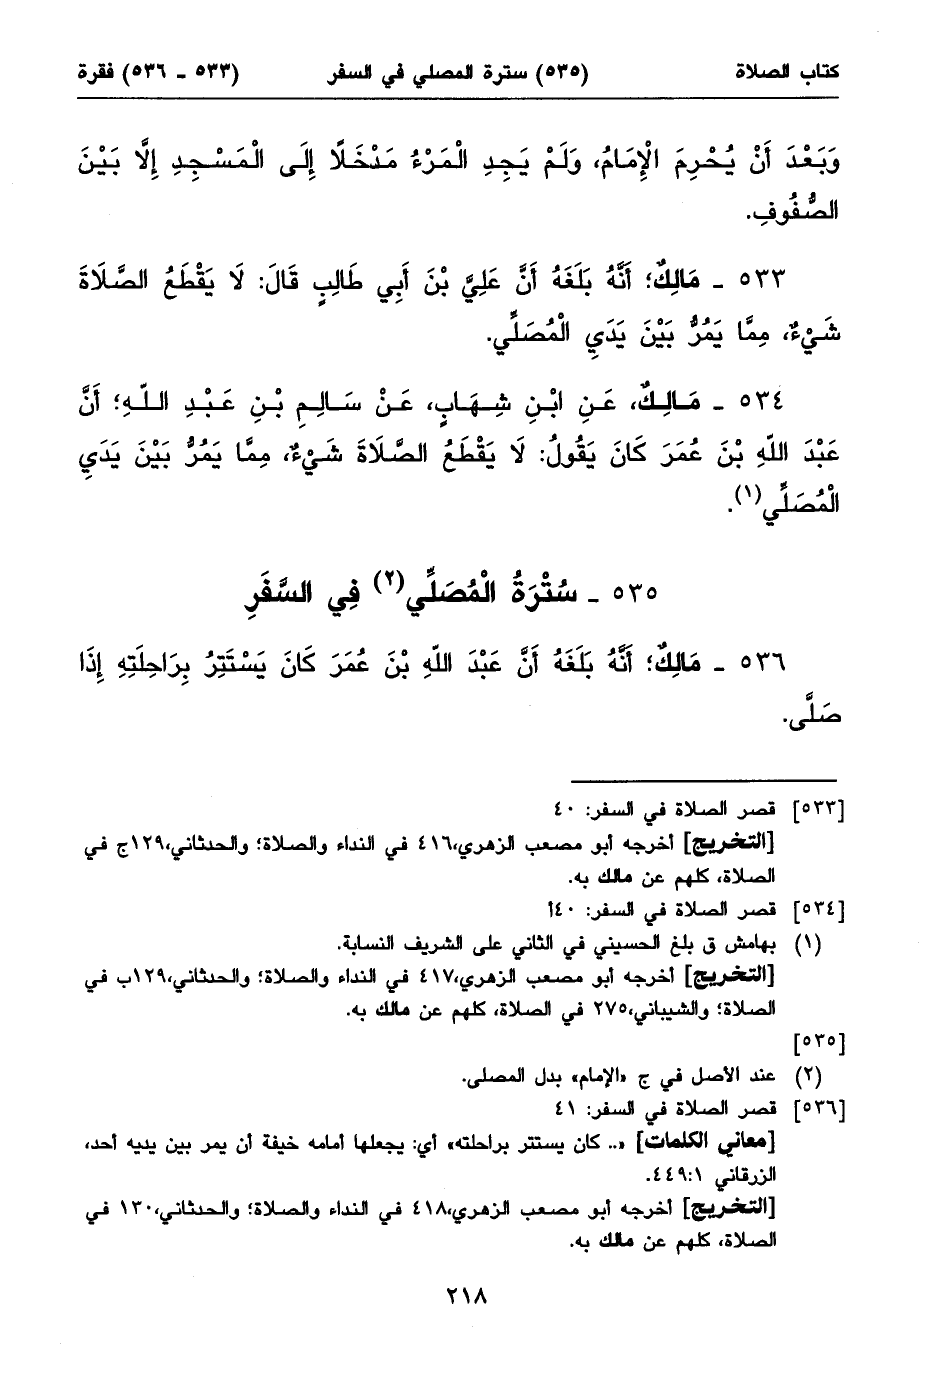 كتاب الصلاة (٥٣٥) سترة المصلي في السفر (٥٣٣ - ٥٣٦) فقرة
وَبَعْدَ أَنْ يُحْرِمَ الْإِمَامُ، وَلَمْ يَجِدِ الْمَرْءُ مَدْخَلًا إِلَى الْمَسْجِدِ إِلَّا بَيْنَ
الصُّفُوفِ.
٥٣٣ - مَالِكٌ؛ أَنَّهُ بَلَغَهُ أَنَّ عَلِيَّ بْنَ أَبِي طَالِبٍ قَالَ: لَا يَقْطَعُ الصَّلَاةَ
شَيْءٌ، مِمَّا يَمُرُّ بَيْنَ يَدَيِ الْمُصَلِّي.
٥٣٤ - مَالِكٌ، عَنِ ابْنِ شِهَابٍ، عَنْ سَالِمِ بْنِ عَبْدِ اللهِ؛ أَنَّ
عَبْدَ اللّٰهِ بْنَ عُمَرَ كَانَ يَقُولُ: لَا يَقْطَعُ الصَّلَاةَ شَيْءٌ، مِمَّا يَمُرُّ بَيْنَ يَدَيِ
الْمُصَلِّي(١).
٥٣٥ - سُتْرَةُ الْمُصَلِّي(٢) فِي السَّفَرِ
٥٣٦ - مَالِكٌ؛ أَنَّهُ بَلَغَهُ أَنَّ عَبْدَ اللّٰهِ بْنَ عُمَرَ كَانَ يَسْتَتِرُ بِرَاحِلَتِهِ إِذَا
صَلَّى.
[٥٣٣] قصر الصلاة في السفر: ٤٠
[التخريج] أخرجه أبو مصعب الزهري،٤١٦ في النداء والصلاة؛ والحدثاني،١٢٩ج في
الصلاة، كلهم عن مالك به.
[٥٣٤] قصر الصلاة في السفر: ٤٠أ
(١) بهامش ق بلغ الحسيني في الثاني على الشريف النسابة.
[التخريج] أخرجه أبو مصعب الزهري،٤١٧ في النداء والصلاة؛ والحدثاني،١٢٩ب في
الصلاة؛ والشيباني،٢٧٥ في الصلاة، كلهم عن مالك به.
[٥٣٥]
(٢) عند الأصل في ج «الإمام» بدل المصلى.
[٥٣٦] قصر الصلاة في السفر: ٤١
[معاني الكلمات] «.. كان يستتر براحلته» أي: يجعلها أمامه خيفة أن يمر بين يديه أحد،
الزرقاني ٤٤٩:١.
[التخريج] أخرجه أبو مصعب الزهري،٤١٨ في النداء والصلاة؛ والحدثاني،١٣٠ في
الصلاة، كلهم عن مالك به.
٢١٨